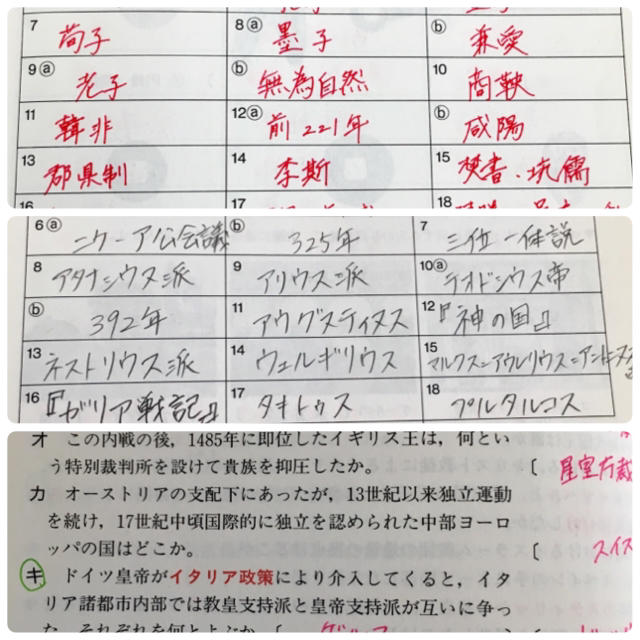 7 荀子 8ⓐ 墨子 ⓑ 兼愛
9ⓐ 老子 ⓑ 無為自然 10 商鞅
11 韓非 12ⓐ 前221年 ⓑ 咸陽
13 郡県制 14 李斯 15 焚書・坑儒
6ⓐ ニケーア公会議 ⓑ 325年 7 三位一体説
8 アタナシウス派 9 アリウス派 10ⓐ テオドシウス帝
ⓑ 392年 11 アウグスティヌス 12 『神の国』
13 ネストリウス派 14 ウェルギリウス 15 マルクス=アウレリウス=アントニヌス
16 『ガリア戦記』 17 タキトゥス 18 プルタルコス
オ この内戦の後，1485年に即位したイギリス王は，何とい
う特別裁判所を設けて貴族を抑圧したか。 [ 星室庁裁
カ オーストリアの支配下にあったが，13世紀以来独立運動
を続け，17世紀中頃国際的に独立を認められた中部ヨーロ
ッパの国はどこか。 [ スイス
キ ドイツ皇帝がイタリア政策により介入してくると，イタ
リア諸都市内部では教皇支持派と皇帝支持派が互いに争っ
た。それぞれを何とよぶか。[